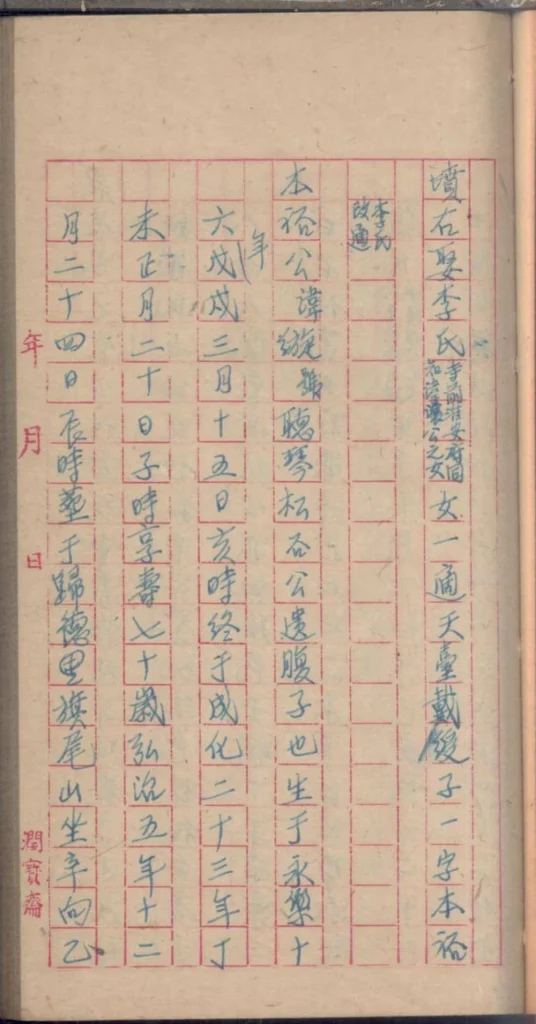 墳右娶李氏寺前淮安府同知 公之女女一適天臺戴 子一字本裕
李氏改適
本裕公諱綻號聽琴松 公遺腹子也生于永樂十
六年戊戌三月十五日亥時終于成化二十三年丁
未正月二十日子時享壽七十歲弘治五年十二
月二十四日辰時塟于歸德里旗尾山坐辛向乙
年 月 日
潤寶齋